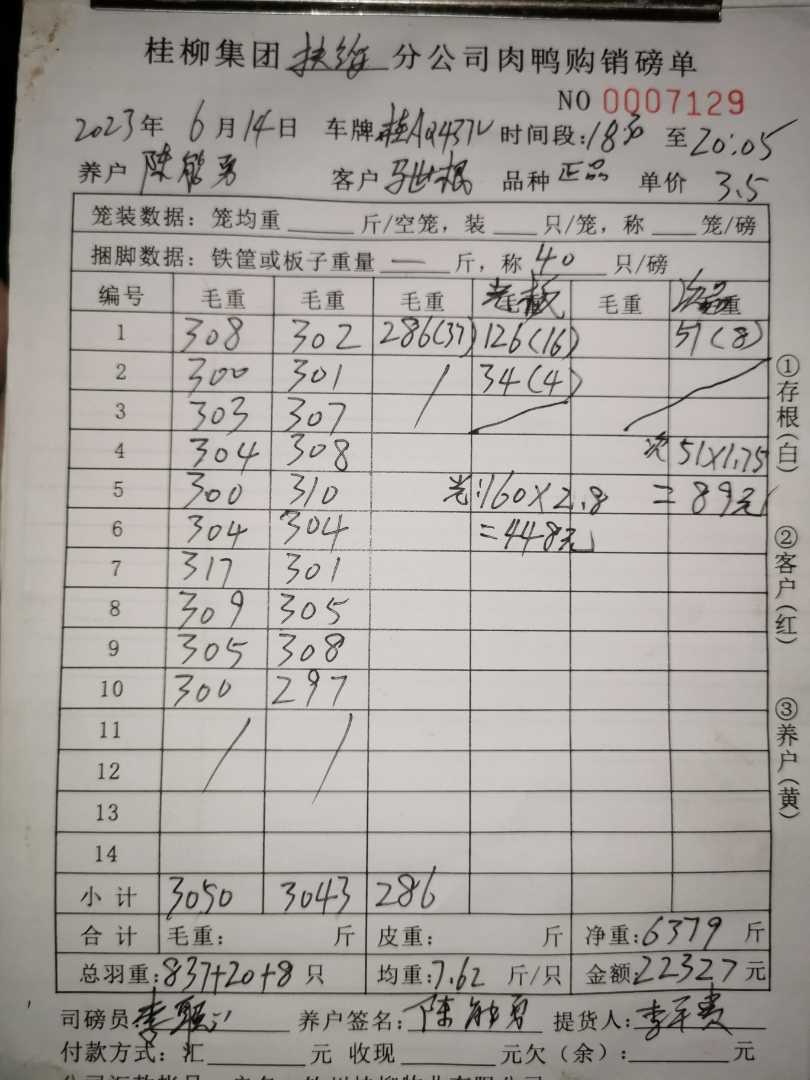 桂柳集团扶绥分公司肉鸭购销磅单
NO 0007129
2023年 6月14日 车牌 时间段:18:30 至20:05
养户 陈能勇 客户 品种 正品 单价 3.5
笼装数据: 笼均重 斤/空笼, 装 只/笼, 称 笼/磅
捆脚数据: 铁筐或板子重量 — 斤, 称 40 只/磅
编号 毛重 毛重 毛重 光板 毛重 次品 重
1 308 302 286(37) 126(16) 51(8)
2 300 301 / 34(4)
3 303 307
4 304 308 次 51×1.75
5 300 310 光:160×2.8 =89元
6 304 304 =448元
7 317 301
8 309 305
9 305 308
10 300 297
11 / /
12
13
14
小计 3050 3043 286
合计 毛重: 斤 皮重: 斤 净重:6379 斤
总羽重:837+20+8 只 均重:7.62 斤/只 金额:22327 元
司磅员: 养户签名: 陈能勇 提货人:
付款方式: 汇 元 收现 元欠(余): 元
①存根(白)
②客户(红)
③养户(黄)